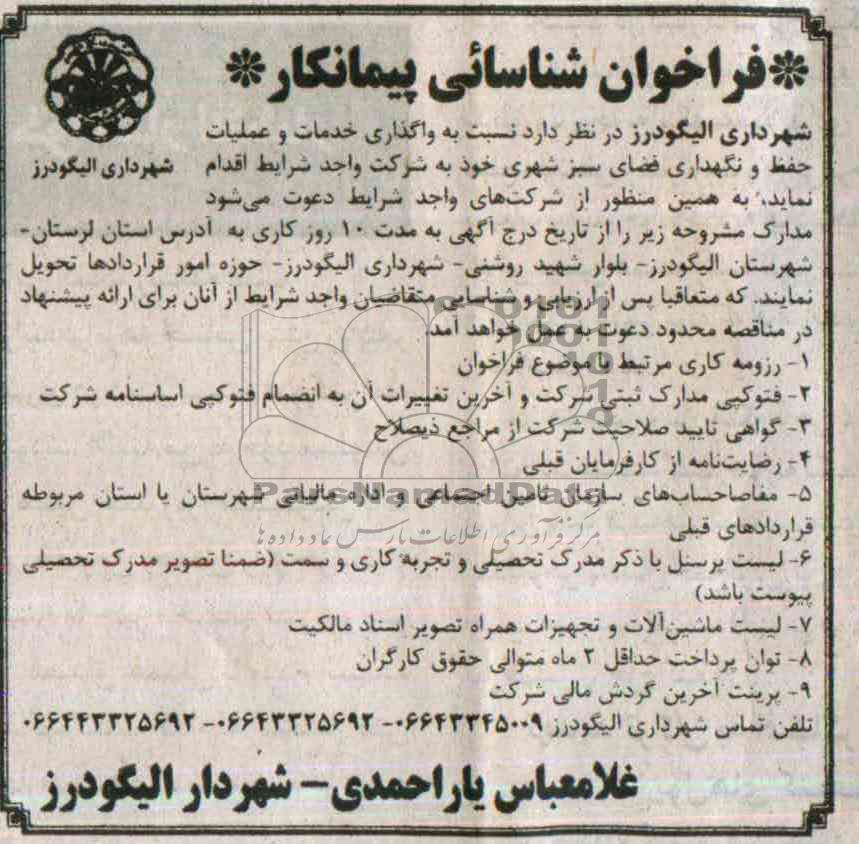 *فراخوان شناسائی پیمانکار*
شهرداری الیگودرز
شهرداری الیگودرز در نظر دارد نسبت به واگذاری خدمات و عملیات
حفظ و نگهداری فضای سبز شهری خود به شرکت واجد شرایط اقدام
نماید، به همین منظور از شرکت‌های واجد شرایط دعوت می‌شود
مدارک مشروحه زیر را از تاریخ درج آگهی به مدت ۱۰ روز کاری به آدرس استان لرستان-
شهرستان الیگودرز- بلوار شهید روشنی- شهرداری الیگودرز- حوزه امور قراردادها تحویل
نمایند. که متعاقبا پس از ارزیابی و شناسایی متقاضیان واجد شرایط از آنان برای ارائه پیشنهاد
در مناقصه محدود دعوت به عمل خواهد آمد.
۱- رزومه کاری مرتبط با موضوع فراخوان
۲- فتوکپی مدارک ثبتی شرکت و آخرین تغییرات آن به انضمام فتوکپی اساسنامه شرکت
۳- گواهی تایید صلاحیت شرکت از مراجع ذیصلاح
۴- رضایت‌نامه از کارفرمایان قبلی
۵- مفاصاحساب‌های سازمان تامین اجتماعی و اداره مالیاتی شهرستان یا استان مربوطه
قراردادهای قبلی
۶- لیست پرسنل با ذکر مدرک تحصیلی و تجربه کاری و سمت (ضمنا تصویر مدرک تحصیلی
پیوست باشد)
۷- لیست ماشین‌آلات و تجهیزات همراه تصویر اسناد مالکیت
۸- توان پرداخت حداقل ۲ ماه متوالی حقوق کارگران
۹- پرینت آخرین گردش مالی شرکت
تلفن تماس شهرداری الیگودرز ۰۶۶۴۳۳۴۵۰۰۹- ۰۶۶۴۳۳۲۵۶۹۲- ۰۶۶۴۴۳۳۲۵۶۹۲
غلامعباس یاراحمدی- شهردار الیگودرز
ParsNamadData
مرکز فرآوری اطلاعات پارس نماد داده ها